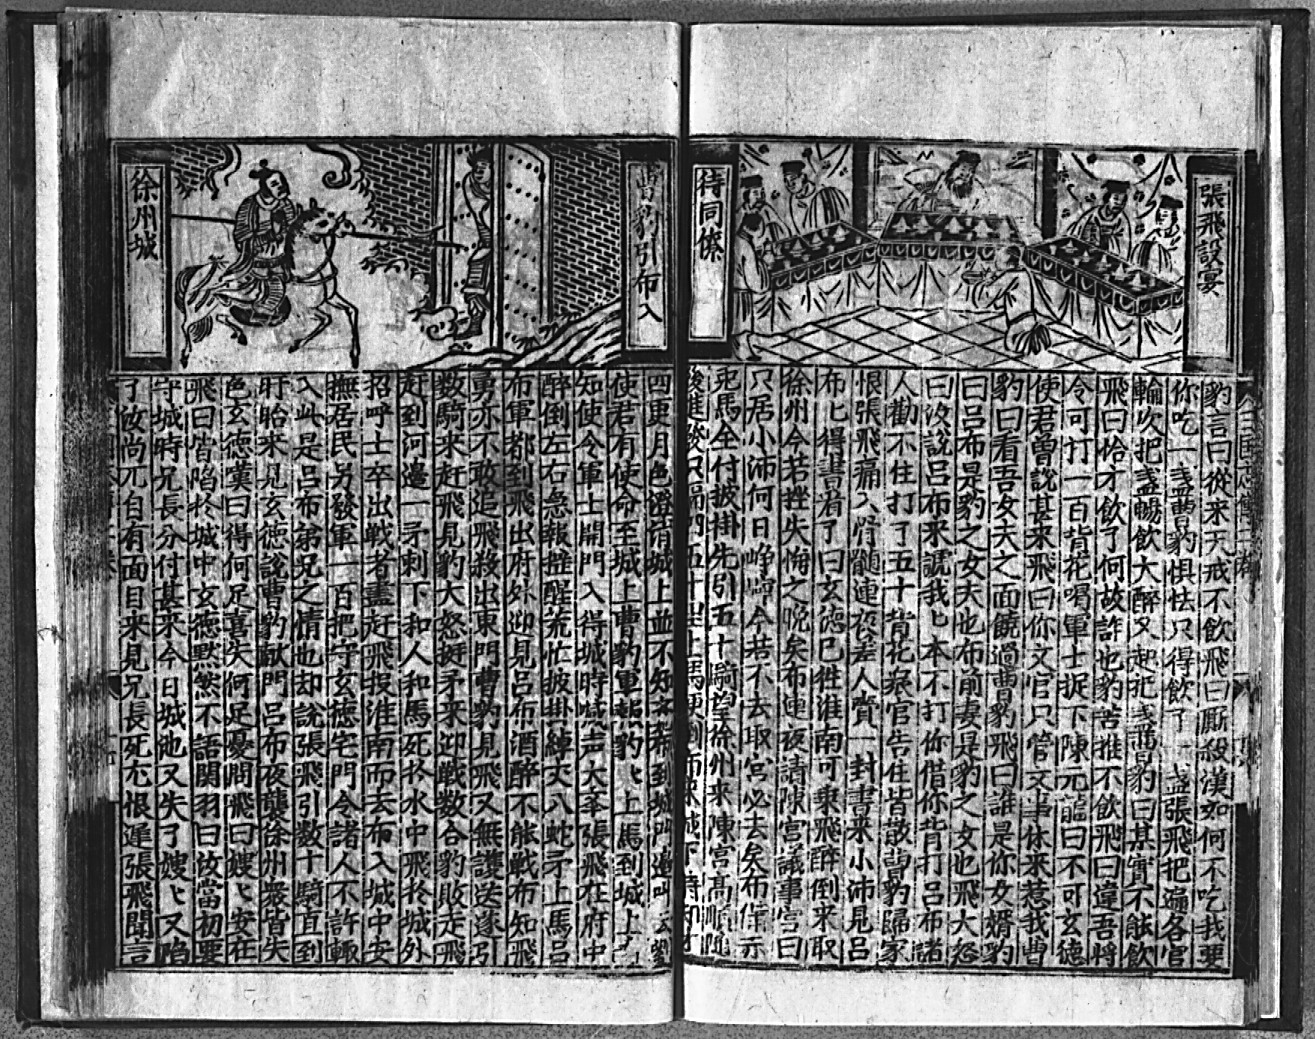 張飛設宴
待同僚
豹言曰從来天戒不飲飛曰厮殺漢如何不吃我要
你吃一盞曹豹惧怯只得飲了一盞張飛把遍各官
輪次把盞暢飲大醉又起把盞曹豹曰其實不能飲
飛曰恰才飲了何故詐也豹苦推不飲飛曰違吾將
令可打一百背花喝軍士捉下陳元龍曰不可玄德
使君曾說甚来飛曰你文官只管文事休来惹我曹
豹曰看吾女夫之面饒過曹豹飛曰誰是你女婿豹
曰吕布是豹之女夫也布前妻是豹之女也飛大怒
曰汝說吕布来諕我匕本不打你借你背打吕布諸
人勸不住打了五十背花衆官告住皆散曹豹歸家
恨張飛痛入骨髓連夜差人賫一封書来小沛見吕
布匕得書看了曰玄德已往淮南可乗飛醉倒来取
徐州今若挫失悔之晚矣布連夜請陳宮議事宮曰
只居小沛何日崢嶸今若不去取宮必去矣布
馬全付披掛先引五十騎望徐州来陳宮髙順
曹豹引布入
徐州城
四更月色澄清城上並不知文到城門邊叫云劉
使君有使命至城上曹豹軍報豹匕上馬到城上
知使令軍士開門入得城時喊声大奉張飛在府中
醉倒左右急報搖醒荒忙披掛綽丈八蛇矛上馬吕
布軍都到飛出府外迎見吕布酒醉不能戰布知飛
勇亦不敢追飛殺出東門曹豹見飛又無護送遂引
数騎来赶飛見豹大怒挺矛来迎戰数合豹敗走飛
赶到河邉一矛刺下和人和馬死扵水中飛扵城外
招呼士卒出戰者盡赶飛投淮南而去布入城中安
撫居民另發軍一百把守玄德宅門令諸人不許輒
入此是吕布弟兄之情也却說張飛引数十騎直到
盱眙来見玄徳說曹豹献門吕布夜襲徐州衆皆失
色玄德嘆曰得何足喜失何足憂関飛曰嫂匕安在
飛曰皆陷扵城中玄德黙然不語関羽曰汝當初要
守城時兄長分付甚来今日城池又失了嫂匕又陷
了汝尚兀自有面目来見兄長死恨遲張飛聞言